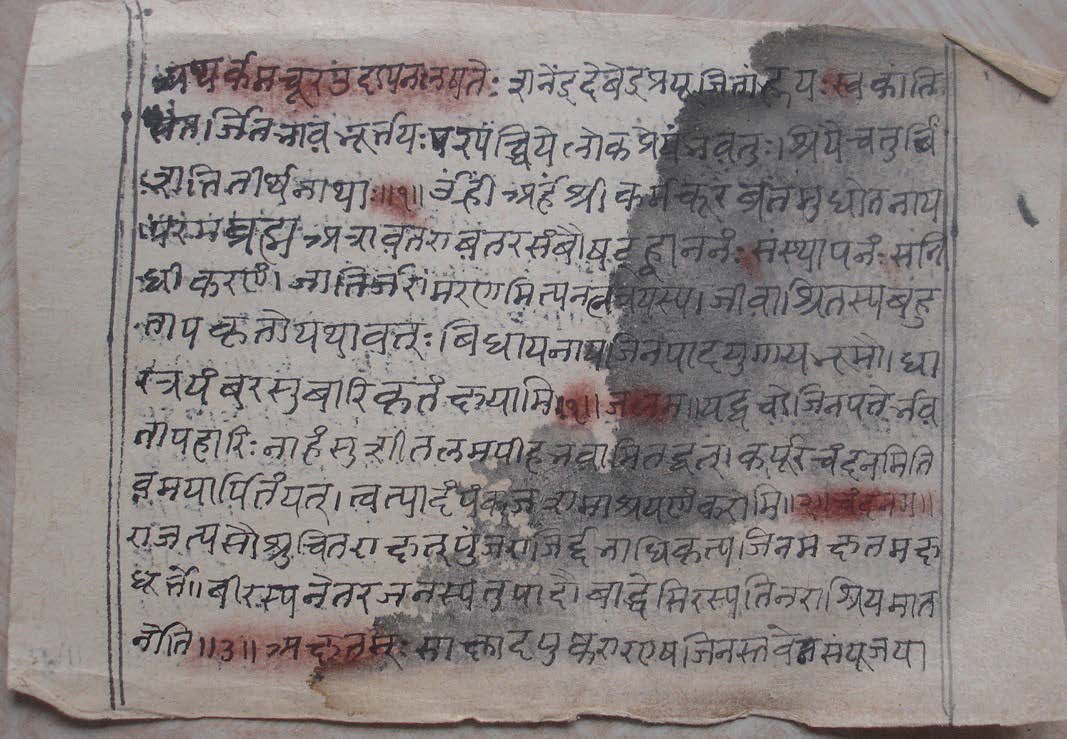 अथ कर्म चूर उद्यापन लिख्यते: इानेंइ देबेइ प्रपूजितांह्रय: स्व कांति
संतर्जित नाव मूर्त्तय: परयं द्विये लोक भवंतु:। श्रिये चतुर्बि
शति तीर्थ नाथा:॥१॥ ॐ ह्री अर्हं श्री कर्म कर व्रत मुद्योतनाय
परम ब्रह्म अत्रावतरावतर संबौषट् ह्वाननं: संस्थापनं: संनि
धी करणं। जातिर्जरा मरणमित्यनल त्रयस्य। जीवाश्रितस्य बहु
ताप कृतो यथावत्: बिधायनाय जिन पाद युगाय भूमौ। धा
रत्रयं बर सु बारि कृतं ददामि॥१॥ जलम॥ यद्व चो जिनपते र्नव
तापहारि: नाहं सुशीतलमपीह भवामि तद्वत्। कर्पूर चंदनमिति
व मयार्पितं यत्। त्वत्पाद पंकज समाश्रयणं करोमि॥२॥ चंदनम॥
राजत्यसौ शुचितराक्षत पुंजराजिर्द्द नाधिकृत्य जिनमक्षतमक्ष
धूर्त्तै॥ बीरस्य नेतर जनस्य तु पादौ बाद्धे शिरस्पतितरा श्रियमात
नोति॥३॥ अक्षतम्: साक्षाद पु जिनस्तवेन संपूजया